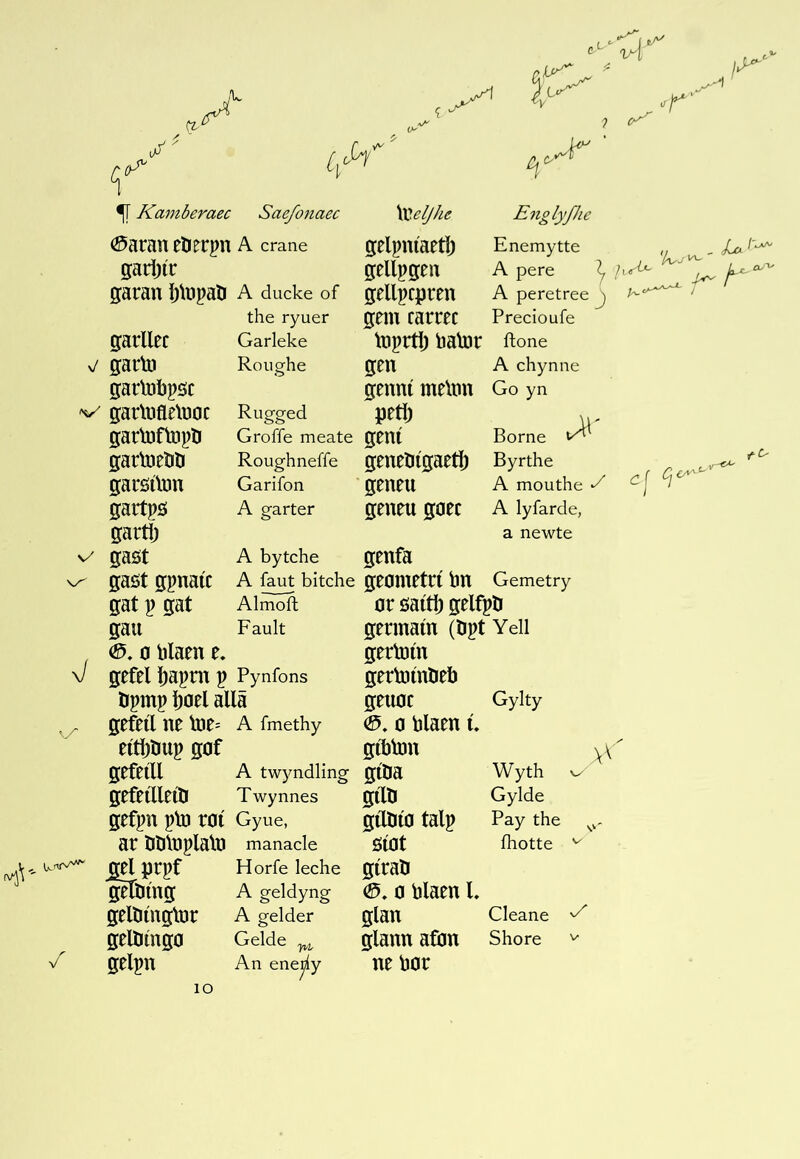 ¶ Kamberaec Saeſonaec
Garan ederyn A crane
garhir
garan hwyad A ducke of
the ryuer
garllec Garleke
garw Roughe
garwbysc
garwflewoc Rugged
garwfwyd Groſſe meate
garwedd Roughneſſe
garsiwn Gariſon
gartys A garter
garth
gast A bytche
gast gynaic A faut bitche
gat y gat Almoſt
gau Fault
G. o vlaen e.
gefel hayrn y Pynſons
dymp hoel allā
gefeil ne we= A ſmethy
eithduy gof
gefeill A twyndling
gefeilleid Twynnes
gefyn yw roi Gyue,
ar ddwylaw manacle
gel yryf Horſe leche
gelding A geldyng
geldingwr A gelder
geldingo Gelde
gelyn An enemy
10
Welſhe Englyſhe
gelyniaeth Enemytte
gellygen A pere
gellycyren A peretree
gem carrec Preciouſe
wyrth vawr ſtone
gen A chynne
genni mewn Go yn
peth
geni Borne
genedigaeth Byrthe
geneu A mouthe
geneu goec A lyſarde,
a newte
genfa
geometri vn Gemetry
or saith gelfyd
germain (dyt Yell
gerwin
gerwindeb
geuoc Gylty
G. o vlaen i.
gibwn
gida Wyth
gild Gylde
gildio taly Pay the
siot ſhotte
girad
G. o vlaen l.
glan Cleane
glann afon Shore
ne vor